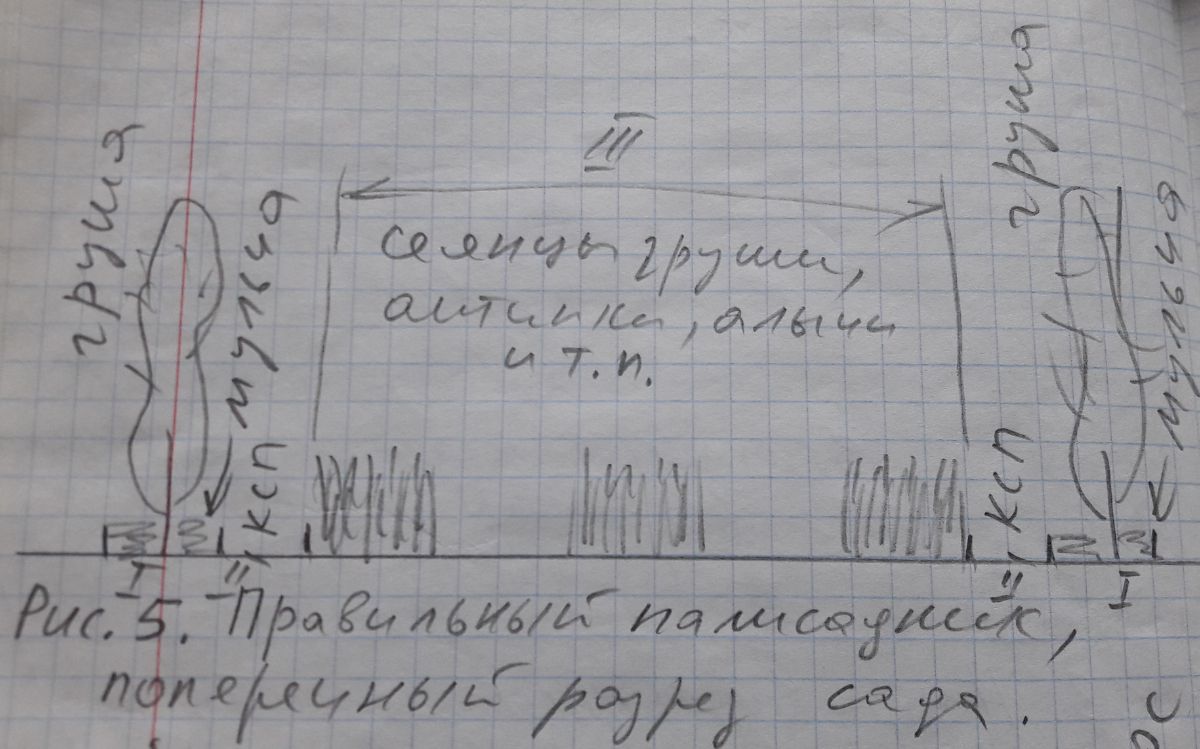 III
груша
мульча
груша
мульча
сеянцы груши,
антипки, алычи
и т. п.
КСП
КСП
I
II
II
I
Рис. 5. Правильный палисадник,
поперечный разрез сада.